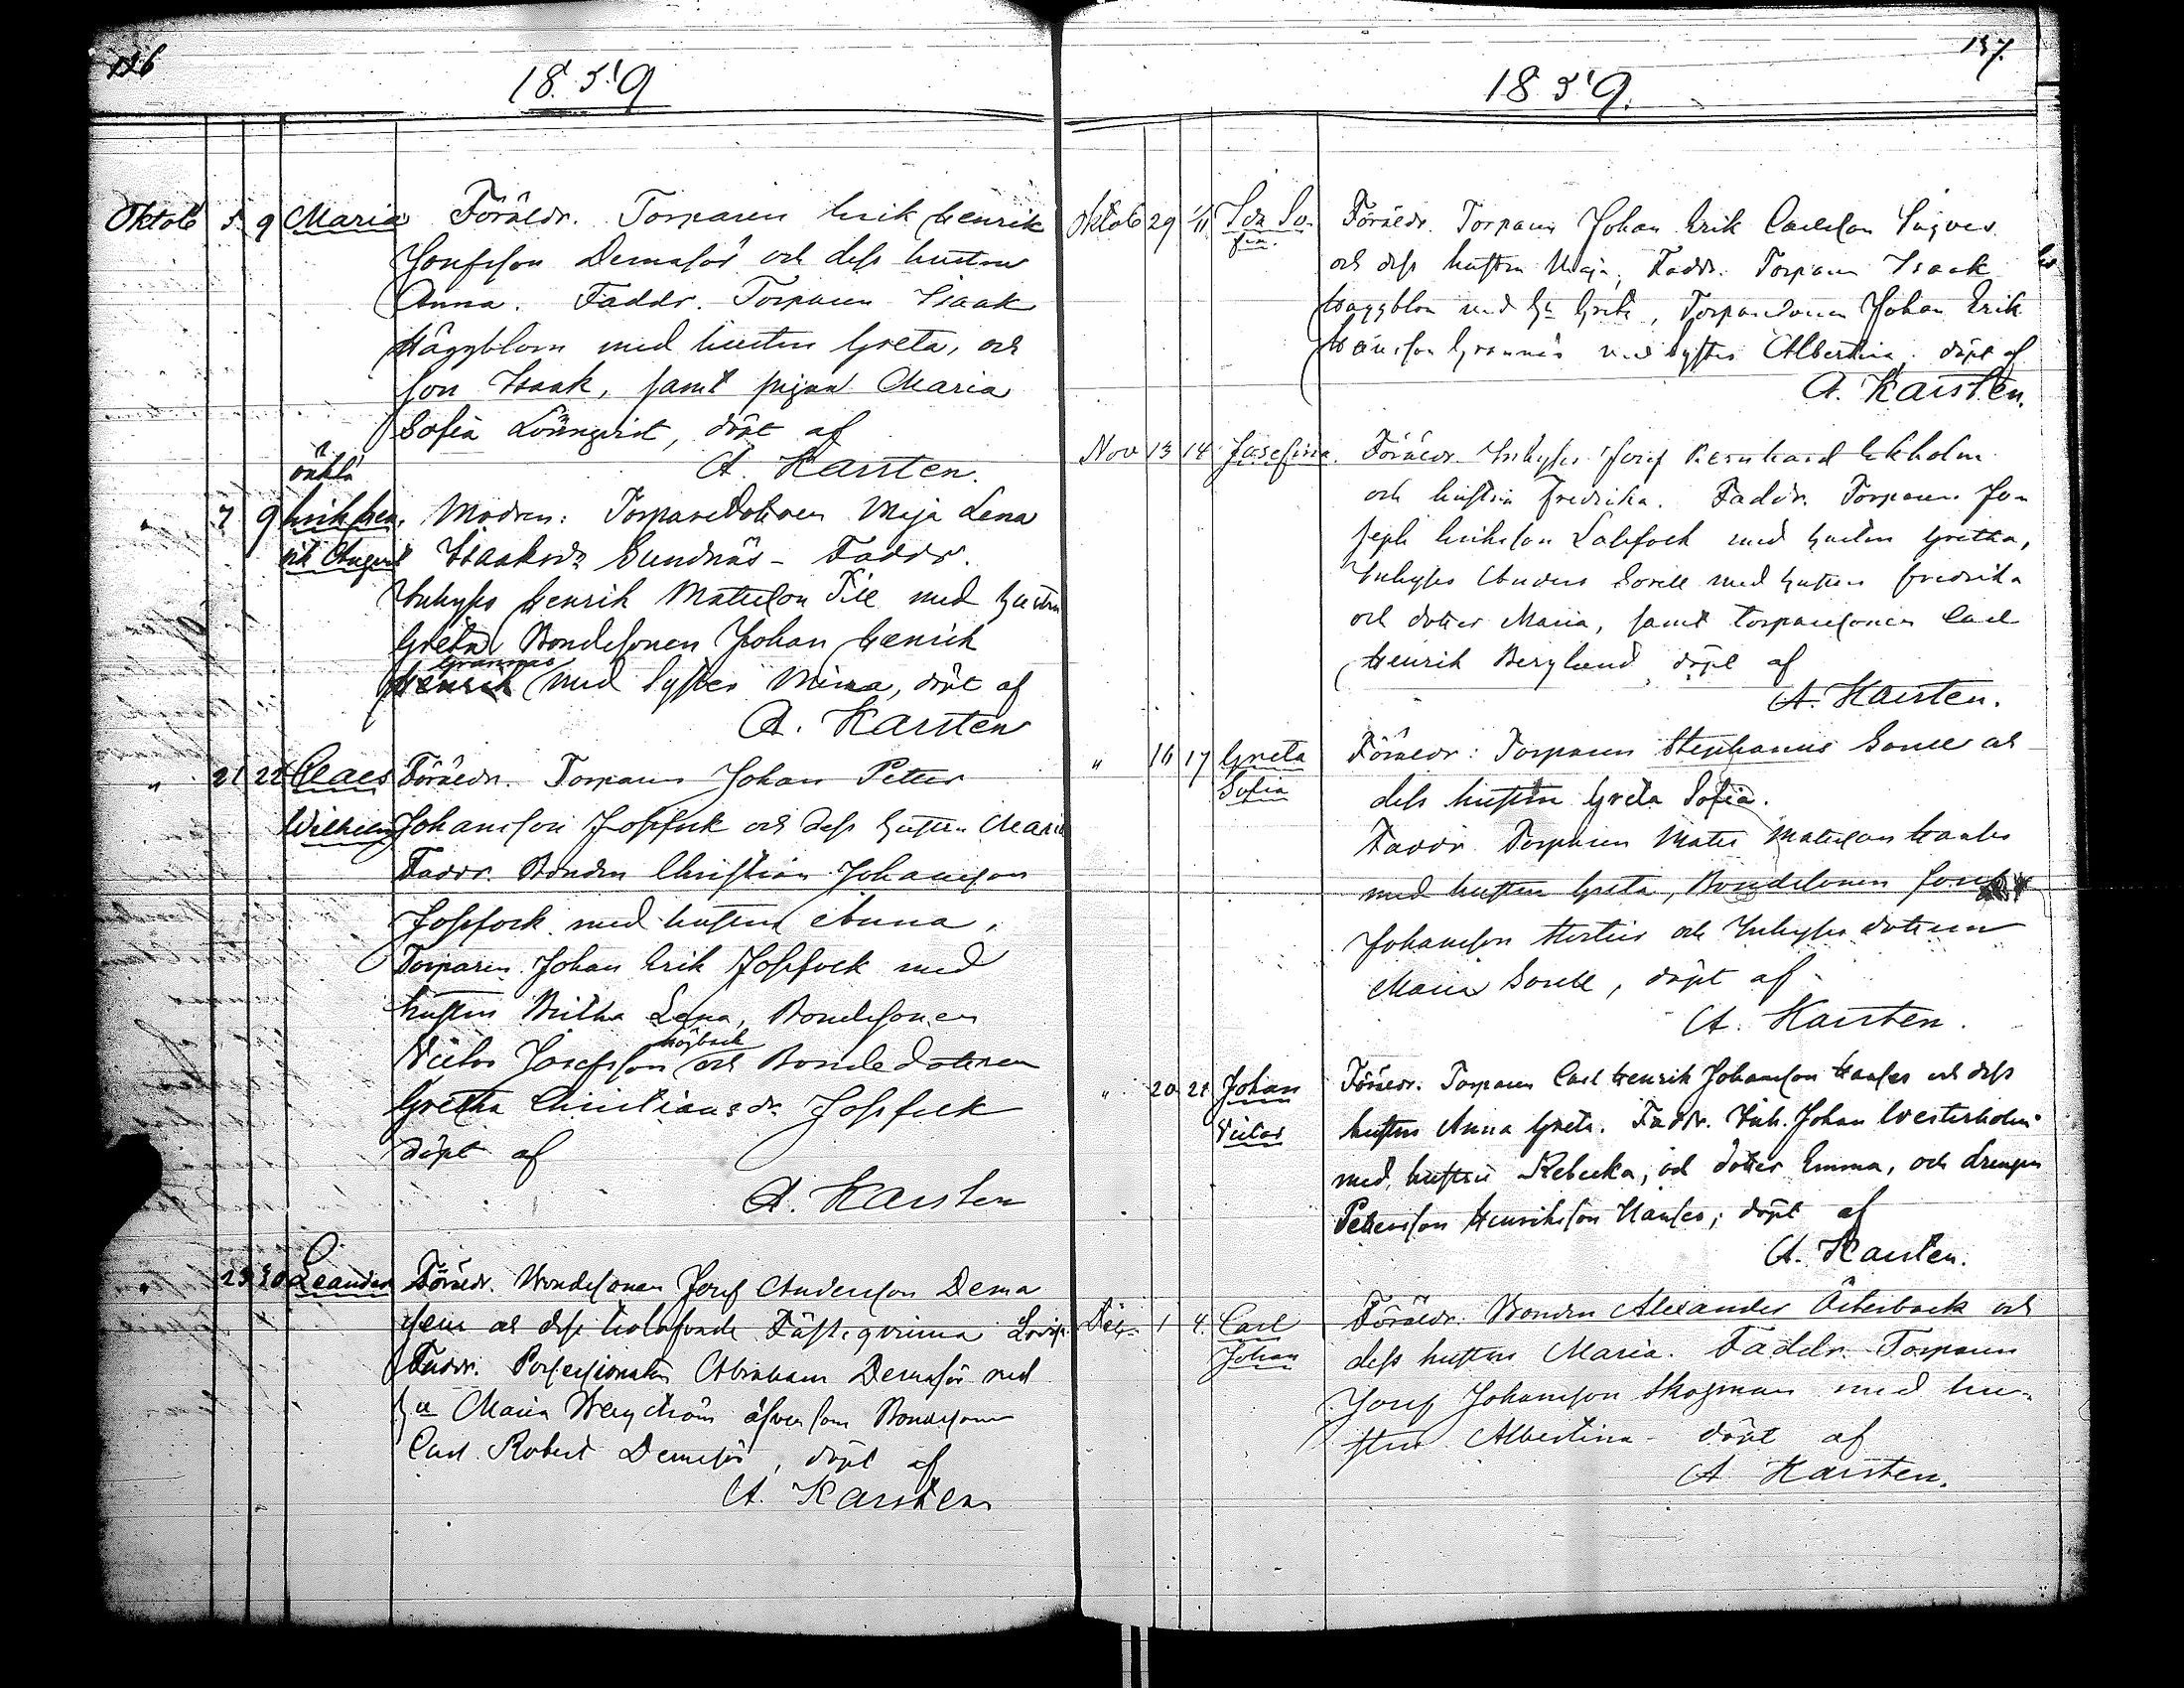 126
1859
Oktob 5 9 Maria Föräldr. Torparen Erik Henrik
Josefsson Demasör och dess hustru
Anna. Faddr. Torparen Isaak
Häggblom med hustru Greta, och
son Isaak, samt pigan Maria
Sofia Lönnqvist, döpt af
A. Karsten.
oäkta
" 7 9 Erik Hen- Modren: Torparedottren Maja Lena
rik August Isaaksdr Sundnäs - Faddr.
Inhyses Henrik Matsson med hustru
Greta, Bondesonen Johan Henrik
Grannas
Henrik med syster Mina, döpt af
A. Karsten
" 21 22 Claes Föräldr. Torparen Johan Petter
Wilhelm Johansson Jossfock och dess hustru Maria
Faddr. Bonden Christian Johansson
Jossfock med hustru Anna,
Torparen Johan Erik Jossfock med
hustru Britha Lena, Bondesonen
högback
Victor Josefsson och Bondedottren
Gretha Christiansdr Jossfock
döpt af
A. Karsten
" 29 30 Leander Föräldr. Bondesonen Josef Andersson Dema
och dess trolofvade Fästeqvinna Lovisa
Faddr. Possessionaten Abraham Demasör med
hu Maria Bergström äfvensom Bondesonen
Carl Robert Demasör, döpt af
A. Karsten
137.
1859.
Oktob 29 1/11 Ida So- Föräldr. Torparen Johan Erik Carlsson Sigvers
fia. och dess hustru Maja, Faddr. Torparen Isaak
Häggblom med hu Greta, Torparesonen Johan Erik
Hansson Grannäs med syster Albertina. döpt af
A. Karsten.
Nov 13 14 Josefina. Föräldr. Inhyses Josef Bernhard Ekholm
och hustru Fredrika. Faddr. Torparen Jo-
seph Eriksson med hustru Gretha,
Inhyses Anders Sorell med hustru Fredrika
och dotter Maria, samt torparesonen Carl
Henrik Berglund döpt af
A. Karsten.
" 16 17 Greta Föräldr: Torparen Stephanus och
Sofia dess hustru Greta Sofia.
Faddr. Torparen Mats Matsson
med hustru Greta, Bondesonen Josef
Johansson och Inhyses dottren
Maria Sorell, döpt af
A. Karsten.
" 20 21 Johan Föräldr. Torparen Carl Henrik Johansson och dess
Victor hustru Anna Greta. Faddr. Inh. Johan Westerholm
med hustru Rebecka, och dotter Emma, och drengen
Petersson Henriksson; döpt af
A. Karsten.
Dec. 1 4. Carl Föräldr. Bonden Alexander Österback och
Johan dess hustru Maria. Faddr. Torparen
Josef Johansson Skogman med hu-
stru Albertina - döpt af
A. Karsten.